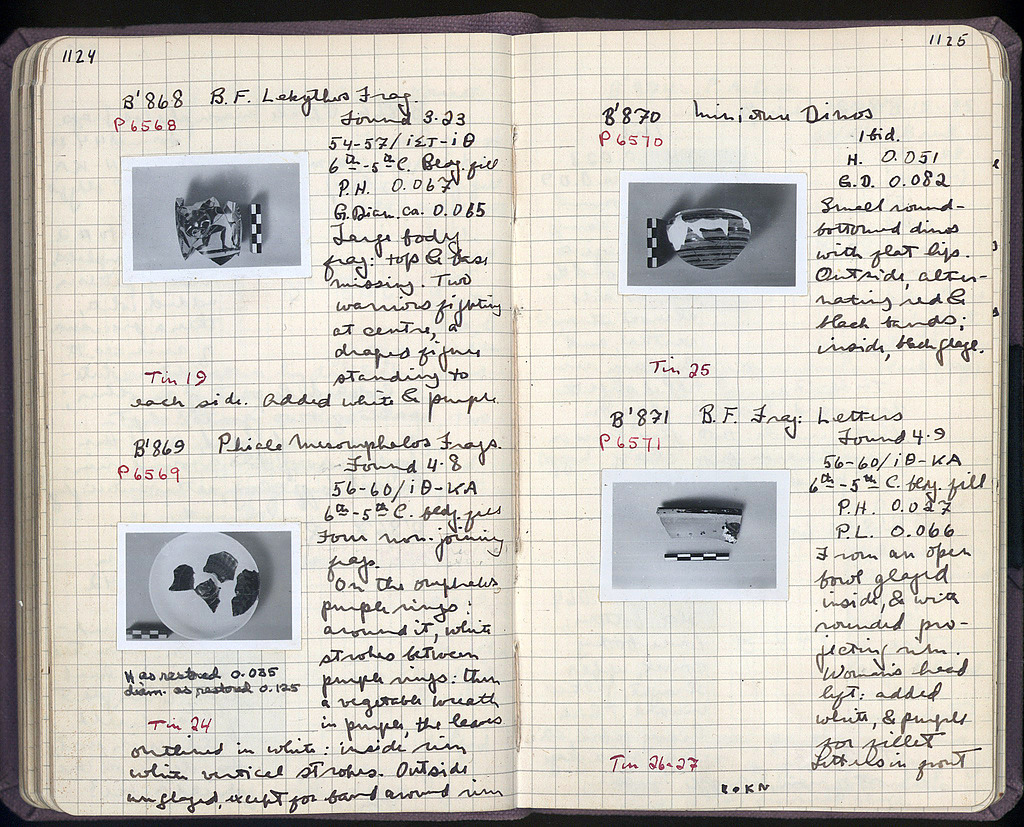 1124
B'868 B.F. Lekythos Frag.
P6568
Found 3·23
54-57/ΙΣΤ-ΙΘ
6th-5th C. Bldg. fill
P.H. 0.067
G. Diam. ca. 0.065
Large body
frag: top & base
missing. Two
warriors fighting
at centre, a
draped figure
standing to
Tin 19
each side. Added white & purple
B'869 Phiale Mesomphalos Frags.
P6569
Found 4·8
56-60/ΙΘ-ΚΑ
6th-5th C. bldg. fill
Four non-joining
frags.
On the omphalos
purple rings:
around it, white
strokes between
purple rings: then
a vegetable wreath
in purple, the leaves
H as restored 0.035
diam. as restored 0.125
Tin 24
outlined in white: inside rim
white vertical strokes. Outside
unglazed, except for band around rim
1125
B'870 Miniature Dinos
P6570
Ibid.
H. 0.051
G.D. 0.082
Small round-
bottomed dinos
with flat lip.
Outside, alter-
nating red &
black bands;
inside, black glaze.
Tin 25
B'871 B.F. Frag: Letters
P6571
Found 4·9
56-60/ΙΘ-ΚΑ
6th-5th C. bldg. fill
P.H. 0.027
P.L. 0.066
From an open
bowl glazed
inside, & with
rounded pro-
jecting rim.
Woman's head
left: added
white, & purple
for fillet
Letters in front
Tin 26-27